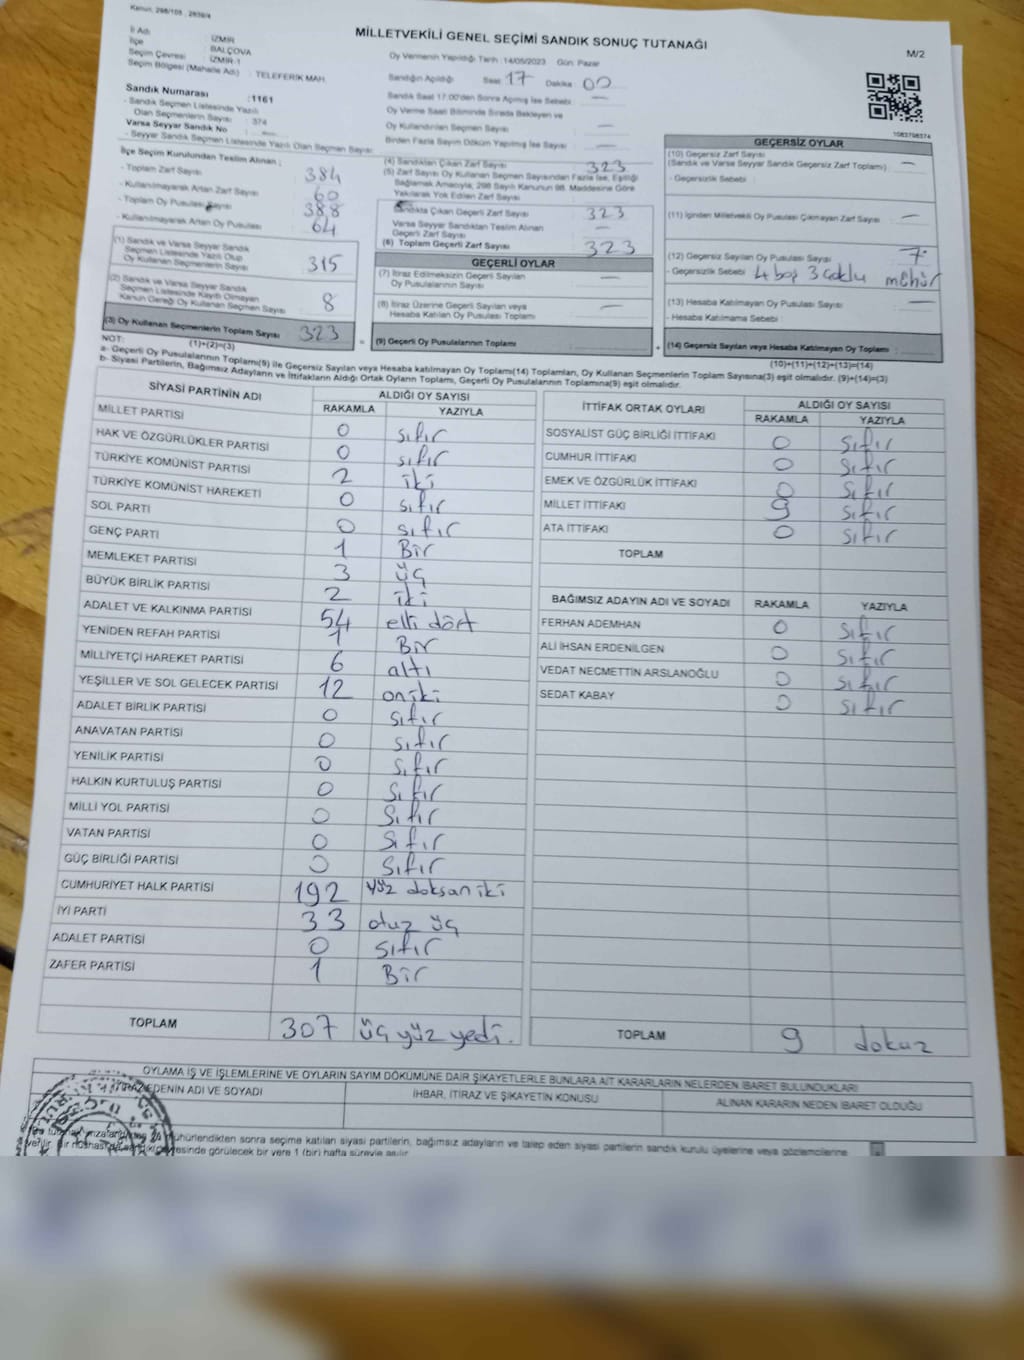 Kanun, 298/105 , 2839/4
MİLLETVEKİLİ GENEL SEÇİMİ SANDIK SONUÇ TUTANAĞI
M/2
İl Adı : İZMİR
İlçe : BALÇOVA
Seçim Çevresi : İZMİR-1
Seçim Bölgesi (Mahalle Adı) : TELEFERİK MAH.
Oy Vermenin Yapıldığı Tarih : 14/05/2023 Gün: Pazar
Sandığın Açıldığı Saat 17 Dakika 00
Sandık Saat 17:00'den Sonra Açılmış İse Sebebi : —
Oy Verme Saati Bitiminde Sırada Bekleyen ve
Oy Kullandırılan Seçmen Sayısı : —
Birden Fazla Sayım Döküm Yapılmış İse Sayısı : —
Sandık Numarası : 1161
- Sandık Seçmen Listesinde Yazılı
Olan Seçmenlerin Sayısı : 374
Varsa Seyyar Sandık No :
- Seyyar Sandık Seçmen Listesinde Yazılı Olan Seçmen Sayısı
1083798374
İlçe Seçim Kurulundan Teslim Alınan ;
- Toplam Zarf Sayısı : 384
- Kullanılmayarak Artan Zarf Sayısı : 60
- Toplam Oy Pusulası Sayısı : 388
- Kullanılmayarak Artan Oy Pusulası : 64
(1) Sandık ve Varsa Seyyar Sandık
Seçmen Listesinde Yazılı Olup
Oy Kullanan Seçmenlerin Sayısı 315
(2) Sandık ve Varsa Seyyar Sandık
Seçmen Listesinde Kayıtlı Olmayan
Kanun Gereği Oy Kullanan Seçmen Sayısı 8
(3) Oy Kullanan Seçmenlerin Toplam Sayısı 323
(1)+(2)=(3)
(4) Sandıktan Çıkan Zarf Sayısı 323
(5) Zarf Sayısı Oy Kullanan Seçmen Sayısından Fazla İse, Eşitliği
Sağlamak Amacıyla; 298 Sayılı Kanunun 98. Maddesine Göre
Yakılarak Yok Edilen Zarf Sayısı :
Sandıkta Çıkan Geçerli Zarf Sayısı : 323
Varsa Seyyar Sandıktan Teslim Alınan
Geçerli Zarf Sayısı : —
(6) Toplam Geçerli Zarf Sayısı : 323
GEÇERLİ OYLAR
(7) İtiraz Edilmeksizin Geçerli Sayılan
Oy Pusulalarının Sayısı : —
(8) İtiraz Üzerine Geçerli Sayılan veya
Hesaba Katılan Oy Pusulası Toplamı : —
(9) Geçerli Oy Pusulalarının Toplamı :
GEÇERSİZ OYLAR
(10) Geçersiz Zarf Sayısı
(Sandık ve Varsa Seyyar Sandık Geçersiz Zarf Toplamı) : —
- Geçersizlik Sebebi :
(11) İçinden Milletvekili Oy Pusulası Çıkmayan Zarf Sayısı : —
(12) Geçersiz Sayılan Oy Pusulası Sayısı : 7
- Geçersizlik Sebebi : 4 boş 3 çoklu mühür
(13) Hesaba Katılmayan Oy Pusulası Sayısı : —
- Hesaba Katılmama Sebebi :
(14) Geçersiz Sayılan veya Hesaba Katılmayan Oy Toplamı :
(10)+(11)+(12)+(13)=(14)
NOT:
a- Geçerli Oy Pusulalarının Toplamı(9) ile Geçersiz Sayılan veya Hesaba katılmayan Oy Toplamı(14) Toplamları, Oy Kullanan Seçmenlerin Toplam Sayısına(3) eşit olmalıdır. (9)+(14)=(3)
b- Siyasi Partilerin, Bağımsız Adayların ve İttifakların Aldığı Ortak Oyların Toplamı, Geçerli Oy Pusulalarının Toplamına(9) eşit olmalıdır.
SİYASİ PARTİNİN ADI ALDIĞI OY SAYISI
RAKAMLA YAZIYLA
MİLLET PARTİSİ 0 sıfır
HAK VE ÖZGÜRLÜKLER PARTİSİ 0 sıfır
TÜRKİYE KOMÜNİST PARTİSİ 2 iki
TÜRKİYE KOMÜNİST HAREKETİ 0 sıfır
SOL PARTİ 0 sıfır
GENÇ PARTİ 1 Bir
MEMLEKET PARTİSİ 3 üç
BÜYÜK BİRLİK PARTİSİ 2 iki
ADALET VE KALKINMA PARTİSİ 54 elli dört
YENİDEN REFAH PARTİSİ 1 Bir
MİLLİYETÇİ HAREKET PARTİSİ 6 altı
YEŞİLLER VE SOL GELECEK PARTİSİ 12 on iki
ADALET BİRLİK PARTİSİ 0 sıfır
ANAVATAN PARTİSİ 0 sıfır
YENİLİK PARTİSİ 0 sıfır
HALKIN KURTULUŞ PARTİSİ 0 sıfır
MİLLİ YOL PARTİSİ 0 sıfır
VATAN PARTİSİ 0 sıfır
GÜÇ BİRLİĞİ PARTİSİ 0 sıfır
CUMHURİYET HALK PARTİSİ 192 yüz doksan iki
İYİ PARTİ 33 otuz üç
ADALET PARTİSİ 0 sıfır
ZAFER PARTİSİ 1 Bir
TOPLAM 307 üç yüz yedi.
İTTİFAK ORTAK OYLARI ALDIĞI OY SAYISI
RAKAMLA YAZIYLA
SOSYALİST GÜÇ BİRLİĞİ İTTİFAKI 0 sıfır
CUMHUR İTTİFAKI 0 sıfır
EMEK VE ÖZGÜRLÜK İTTİFAKI 0 sıfır
MİLLET İTTİFAKI 9 sıfır
ATA İTTİFAKI 0 sıfır
TOPLAM
BAĞIMSIZ ADAYIN ADI VE SOYADI RAKAMLA YAZIYLA
FERHAN ADEMHAN 0 sıfır
ALİ İHSAN ERDENİLGEN 0 sıfır
VEDAT NECMETTİN ARSLANOĞLU 0 sıfır
SEDAT KABAY 0 sıfır
TOPLAM 9 dokuz
OYLAMA İŞ VE İŞLEMLERİNE VE OYLARIN SAYIM DÖKÜMÜNE DAİR ŞİKAYETLERLE BUNLARA AİT KARARLARIN NELERDEN İBARET BULUNDUKLARI
İTİRAZ EDENİN ADI VE SOYADI İHBAR, İTİRAZ VE ŞİKAYETİN KONUSU ALINAN KARARIN NEDEN İBARET OLDUĞU
mühürlendikten sonra seçime katılan siyasi partilerin, bağımsız adayların ve talep eden siyasi partilerin sandık kurulu üyelerine veya gözlemcilerine
verilir. Bir nüshası da sandık çevresinde görülecek bir yere 1 (bir) hafta süreyle asılır.